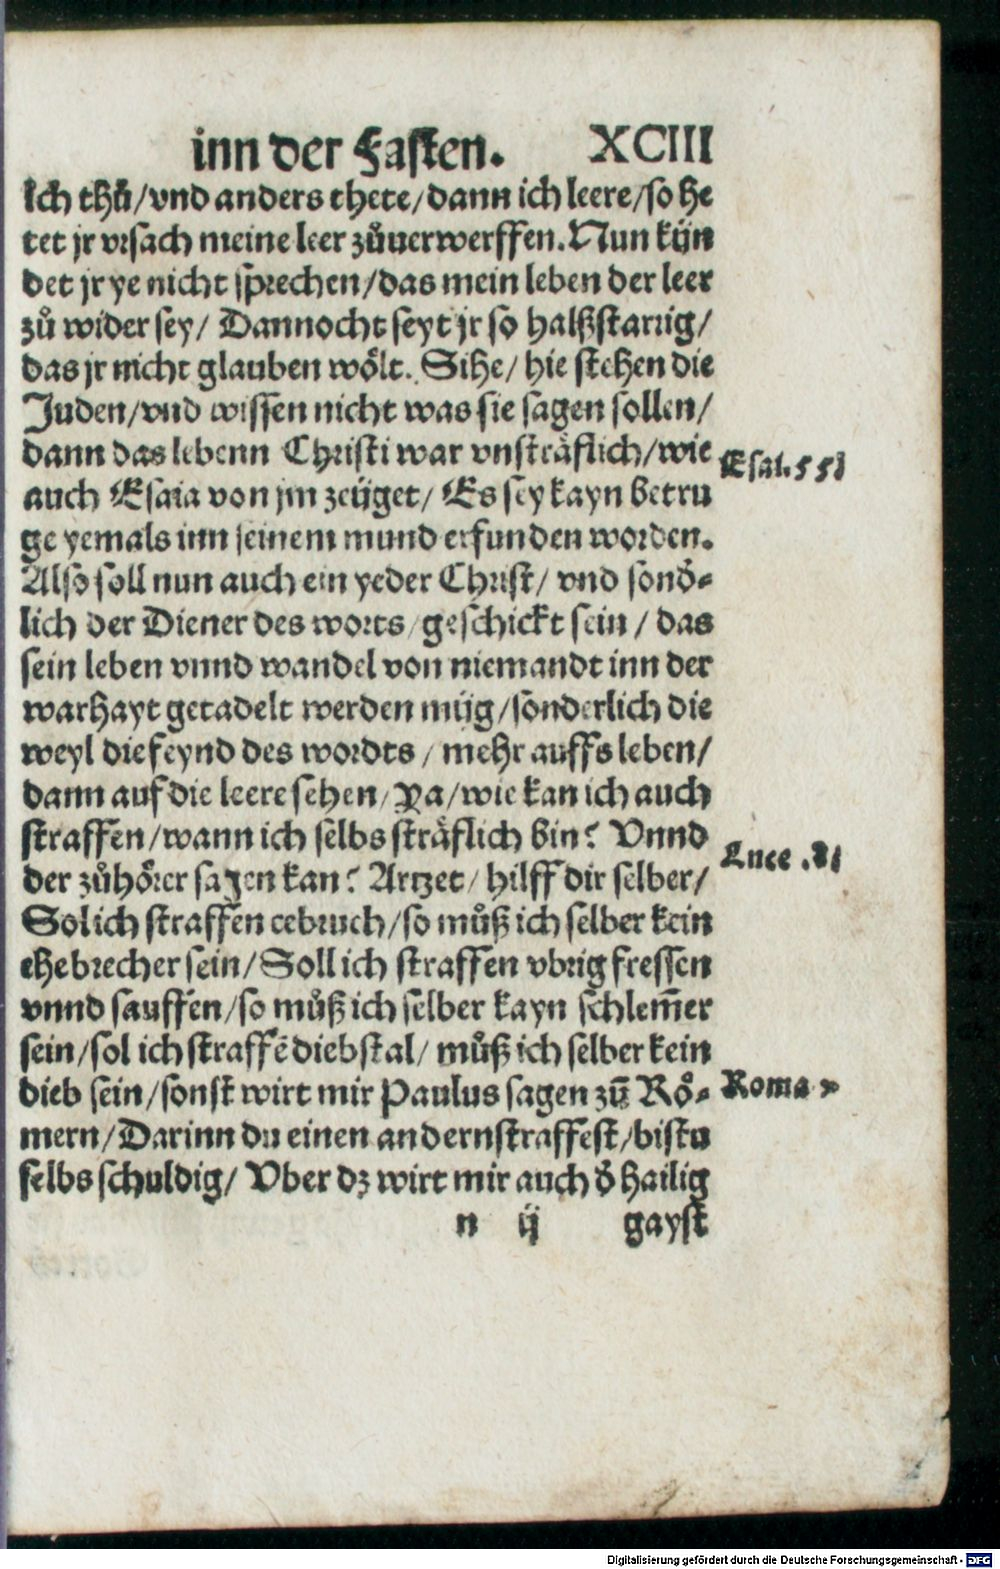 inn der Fasten. XCIII
Ich thů/vnd anders thete/dann ich leere/so he
tet jr vrsach meine leer zůuerwerffen. Nun kün
det jr ye nicht sprechen/das mein leben der leer
zů wider sey/ Dannocht seyt jr so halßstarrig/
das jr nicht glauben wölt. Sihe/ hie stehen die
Juden/vnd wissen nicht was sie sagen sollen/
dann das lebenn Christi war vnsträflich/wie
Esai. 53
auch Esaia von jm zeüget/ Es sey kayn betru
ge yemals inn seinem mund erfunden worden.
Also soll nun auch ein yeder Christ/ vnd sond̄⸗
lich der Diener des worts/geschickt sein/ das
sein leben vnnd wandel von niemandt inn der
warhayt getadelt werden müg/sonderlich die
weyl die feynd des wordts/ mehr auffs leben/
dann auf die leere sehen/ Ya/wie kan ich auch
straffen/wann ich selbs sträflich bin? Vnnd
Luce .
der zůhörer sagen kan? Artzet/ hilff dir selber/
Sol ich straffen eebruch/so můß ich selber kein
ehebrecher sein/Soll ich straffen vbrig fressen
vnnd sauffen/so můß ich selber kayn schlem̄er
sein/sol ich straffē diebstal/ můß ich selber kein
dieb sein/sonst wirt mir Paulus sagen zů Rö⸗
Roma
mern/Darinn du einen andern straffest/bistu
selbs schuldig/ Vber dz wirt mir auch d̄ hailig
n ij gayst
Digitalisierung gefördert durch die Deutsche Forschungsgemeinschaft - DFG